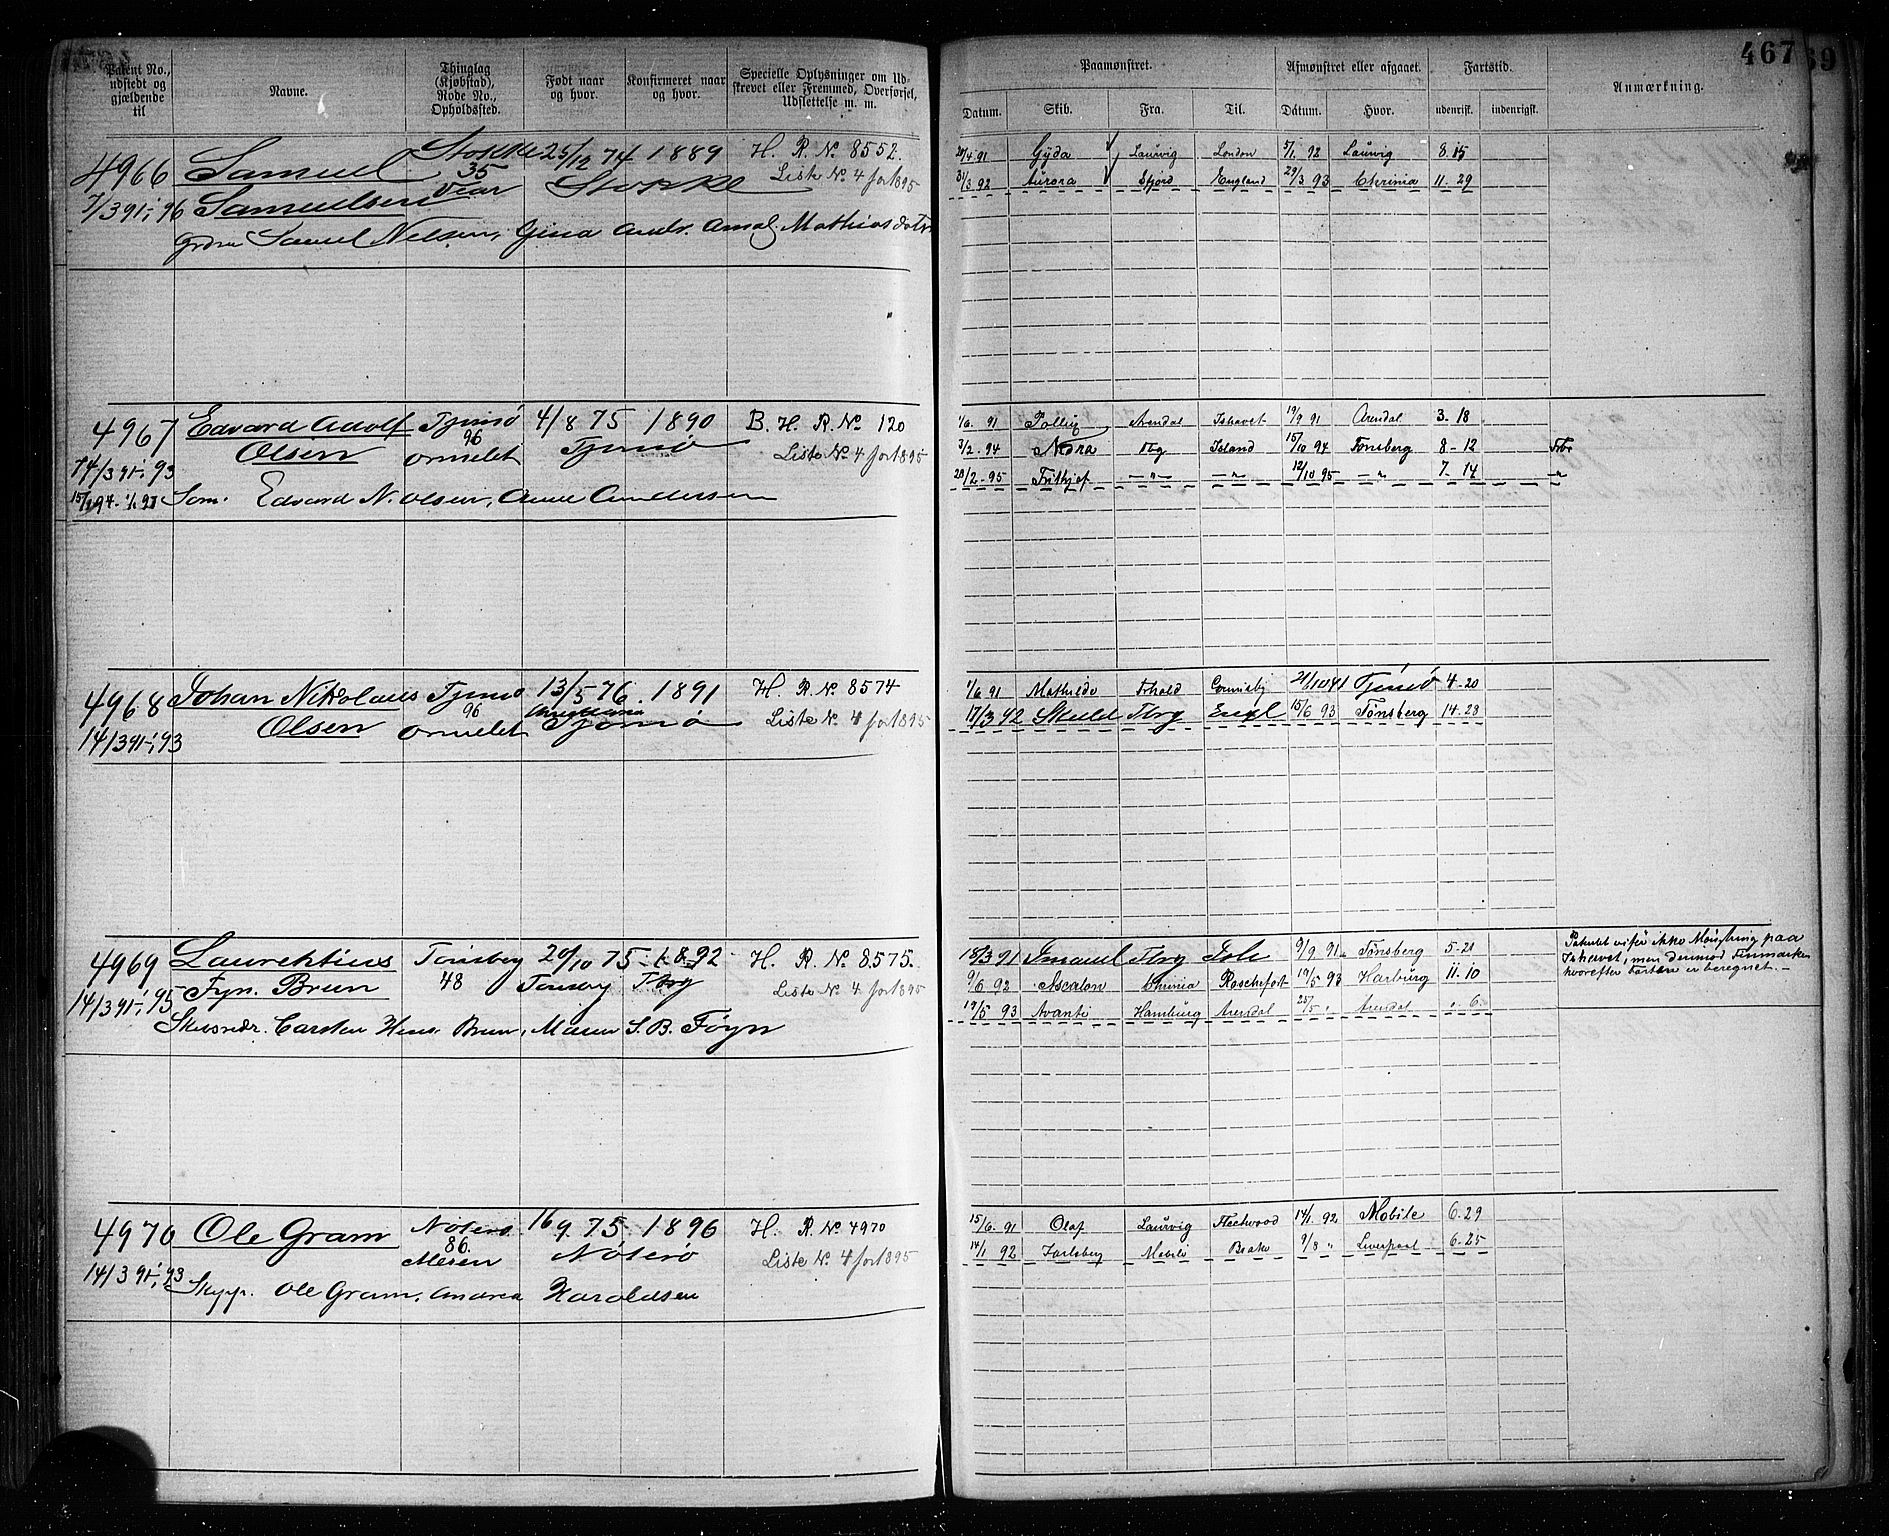 467
Patent No., udstedt og gjældende til | Navne. | Thinglag (Kjøbstad), Rode No., Opholdssted. | Født naar og hvor. | Konfirmeret naar og hvor. | Specielle Oplysninger om Udskrevet eller Fremmed, Overførsel, Udslettelse m. m.
Paamønstret. | Afmønstret eller afgaaet. | Fartstid. | Anmærkning.
Datum. | Skib. | Fra. | Til. | Datum. | Hvor. | udenrigst. | indenrigst.
4966 Samuel Stokke 25/12 74 1889 H. R. No 8552.
35 Stokke Liste No. 4 for 1895
7/3 91-1/1 96 Samuelsen Vear
Samuel Nelsen, Gina Andr. Amal. Mathiasdatr
20/4 91 Gyda Laurvig London 5/1 92 Laurvig 8. 15
31/3 92 Aurora England 29/3 93 Chrinia 11. 29
4967 Edvard Adolf Tjømø 4/8 75 1890 B. H. R. No 120
Olsen 96 Ormelet Tjømø Liste No. 4 for 1895
14/3 91-1/1 93
Søm. Edvard N. Olsen, Anne Andersen
1/6 91 Arendal Ishavet 19/9 91 Arendal 3. 18
3/2 94 Nora Tbg Island 15/10 94 Tønsberg 8 - 12
28/2 - 95 Frithjof — " — — " — 12/10 95 — " 7 - 14 "
4968 Johan Nikolaus Tjømø 13/5 76 1891 H. R. No 8574
Olsen 96 Ormelet Tjømø Liste No. 4 for 1895
14/3 91-1/1 93
1/6 91 Mathilde 21/10 91 Tjømø 4 - 20
17/3 92 Skuld Tbrg Engl 15/6 93 Tønsberg 14 - 28
4969 Laurentius Tønsberg 29/10 75 1892 H. R. No 8575.
Fyn. Bruun 48 Tønsberg Tbrg Liste No. 4 for 1895
14/3 91-1/1 95
Skibsredr. Carsten Hans Bruun, Maren S. B. Føyn
18/3 91 Tbrg 9/9 91 Tønsberg 5 - 21
9/6 92 Ascalon Chrinia Rochefort 19/5 93 Harburg 11. 10
19/5 93 Avanti Hamburg Arendal 25/5 " Arendal " 6
Patentet viser ikke Mønstring paa
Ishavet, men derimod Finmarken
hvorefter Fartstid er beregnet. —
4970 Ole Gram Nøterø 16/9 75 1896 H. R. No 4970
86. Nøterø Liste No. 4 for 1895
14/3 91-1/1 93
Skipp. Ole Gram, Andrea Haraldsen
15/6. 91 Olaf Laurvig Fleetwood 14/1 92 Mobile 6. 29
14/1 92 Jarlsberg Mobile Brake 9/8 " Liverpool 6. 25